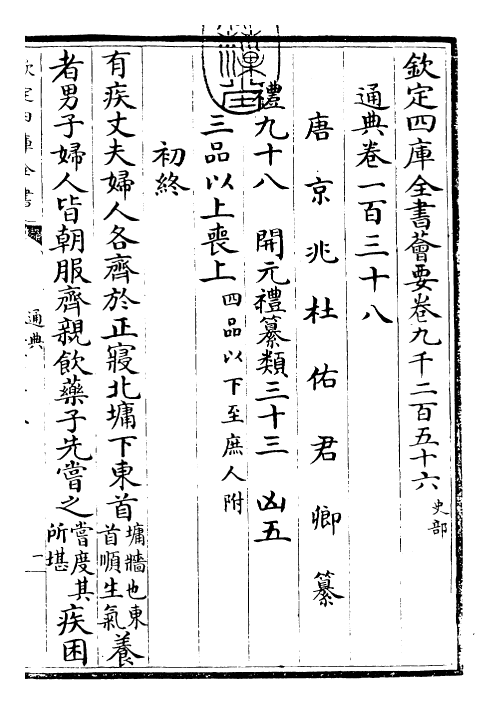 欽定四庫全書薈要卷九千二百五十六 史部
通典卷一百三十八
唐京兆杜佑君卿纂
禮九十八 開元禮纂類三十三 凶五
三品以上喪上 四品以下至庶人附
初終
有疾丈夫婦人各齊於正寢北墉下東首 墉牆也東首順生氣 養
者男子婦人皆朝服齊親飲藥子先嘗之 嘗度其所堪 疾困
欽定四庫全書 通典 一